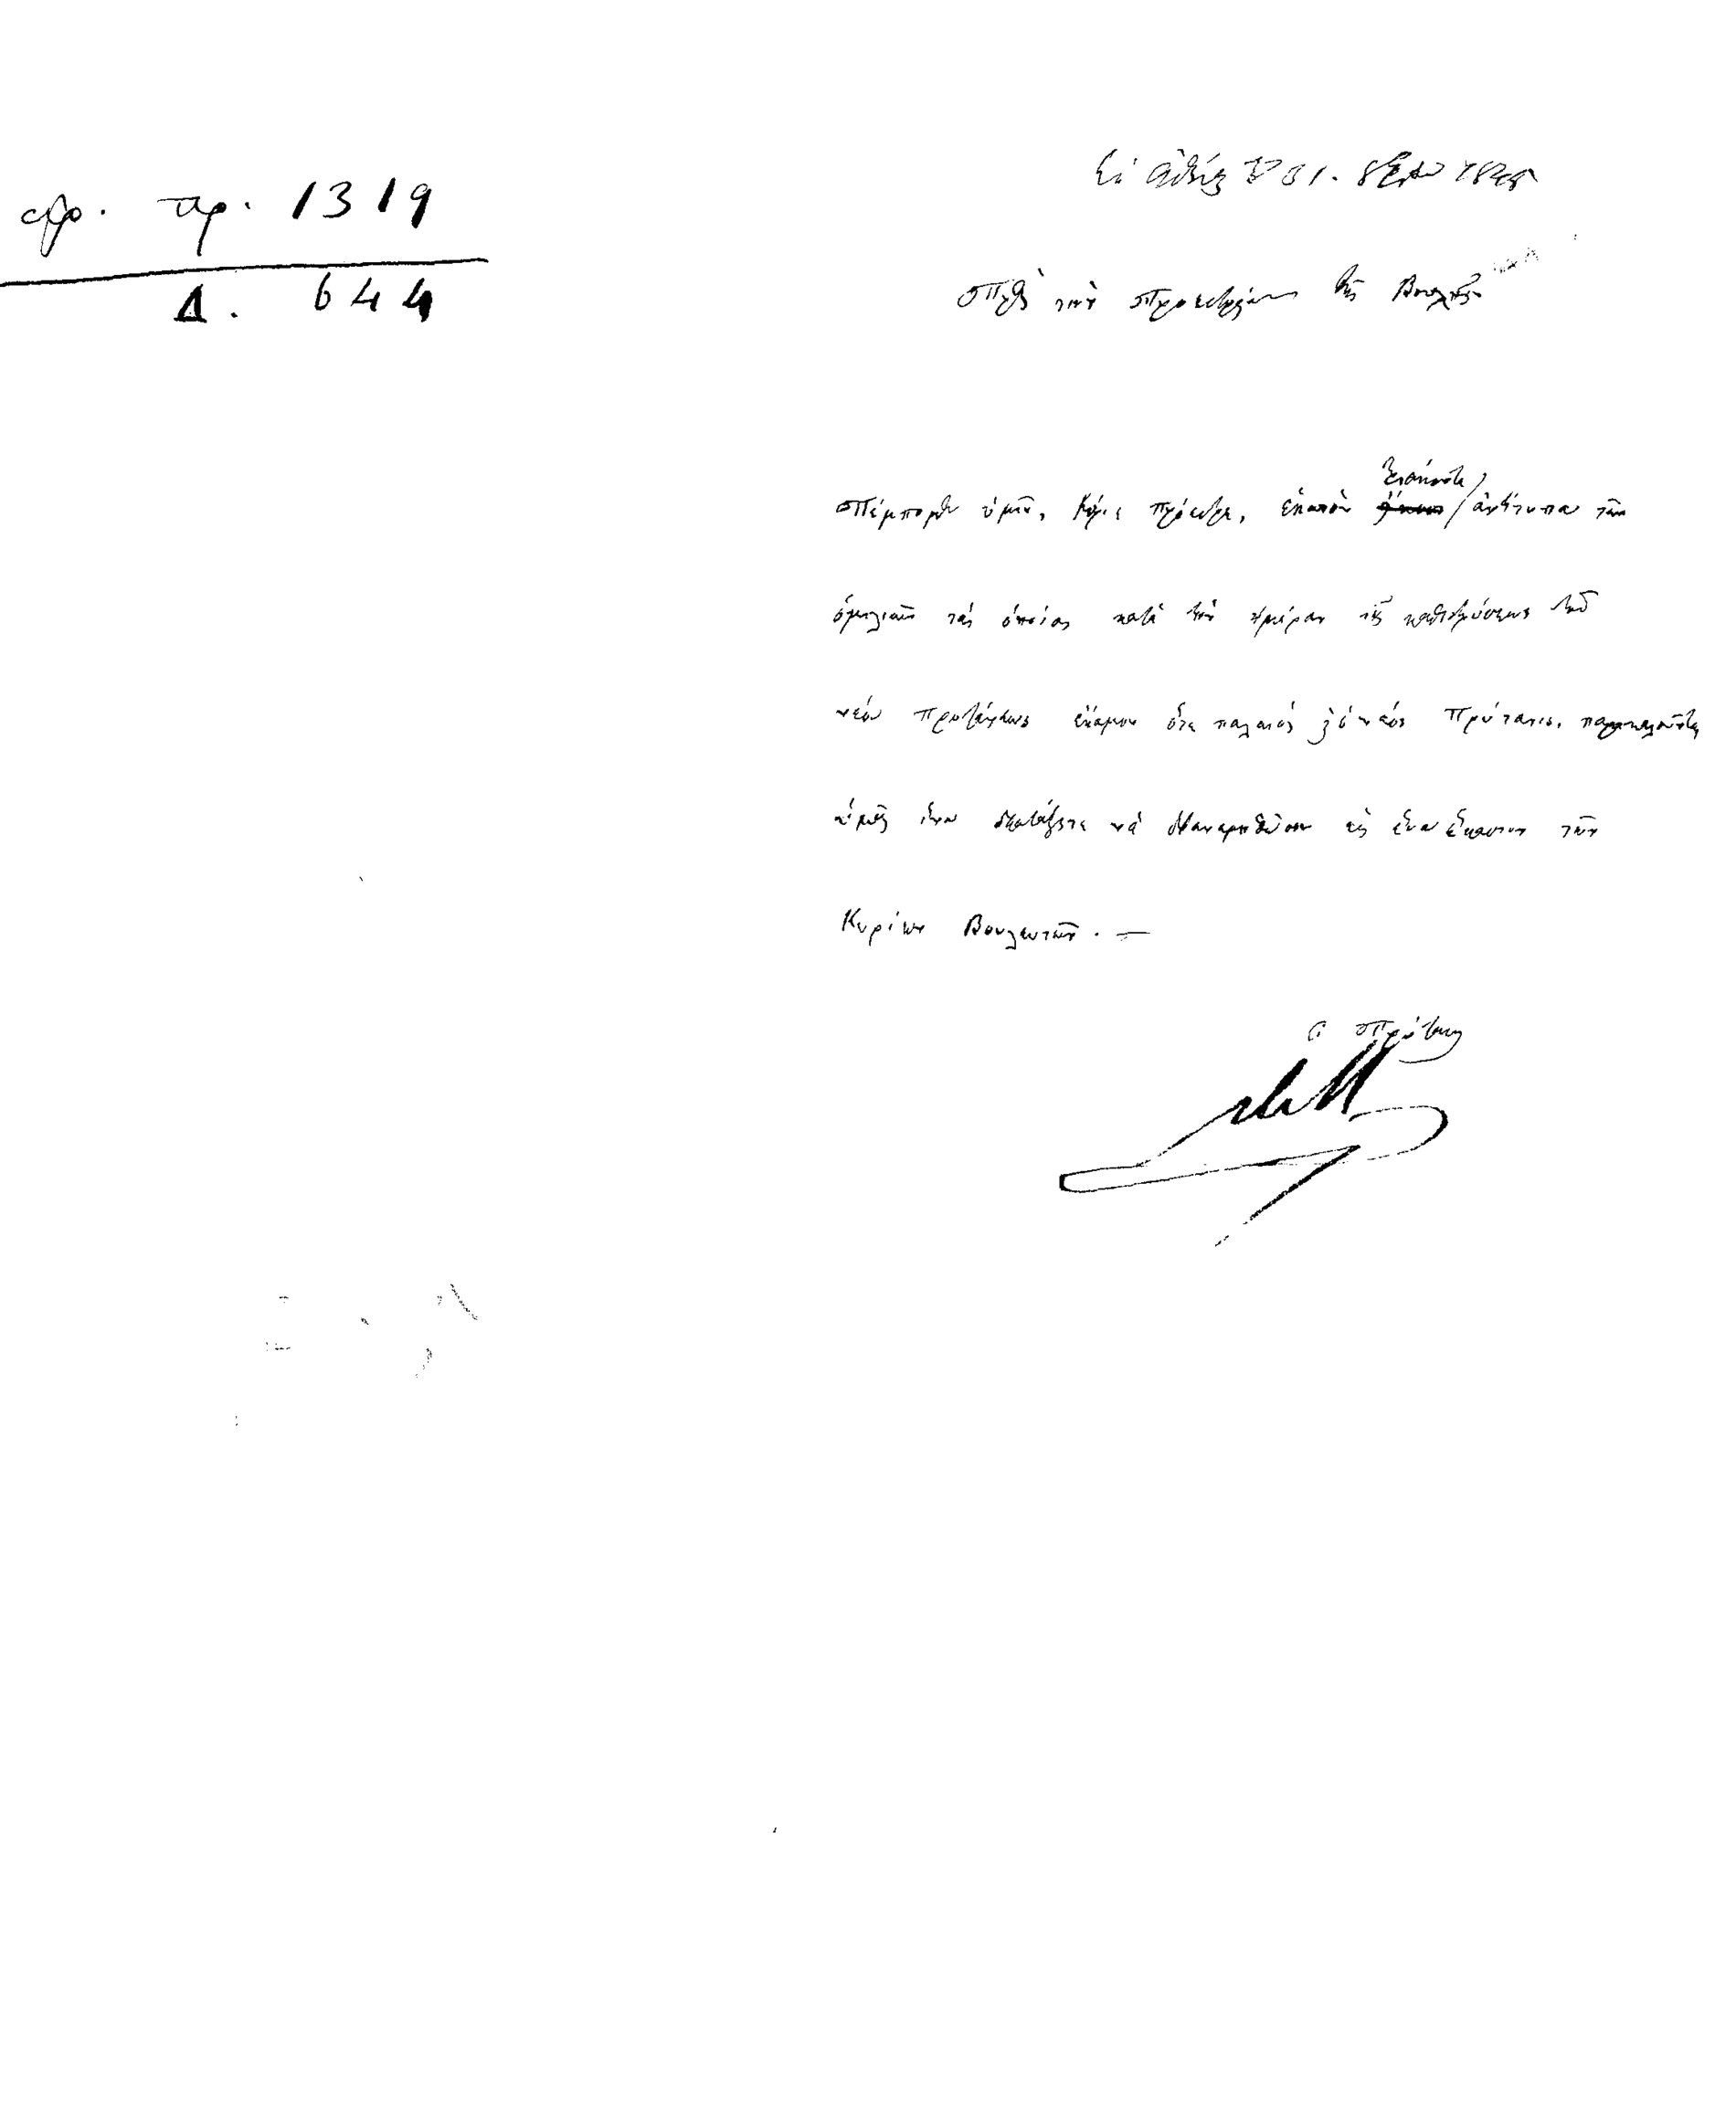 αρ. πρ. 1319
Δ. 644
Ἐν Ἀθήναις τῇ 31. 8βρίου 1845
Πρὸς τὴν Προεδρίαν τῆς Βουλῆς
Πέμπομεν ὑμῖν, Κύριε Πρόεδρε, ἑκατὸν ἑξήκοντα ἀντίτυπα τῶν
ὁμιλιῶν τὰς ὁποίας κατὰ τὴν ἡμέραν τῆς καθιδρύσεως τοῦ
νέου Πρυτάνεως ἔκαμον ὅτε παλαιὸς καὶ ὁ νέος Πρύτανις, παρακαλοῦντες
ὑμᾶς ἵνα διατάξετε νὰ διανεμηθῶσιν εἰς ἕνα ἕκαστον τῶν
Κυρίων Βουλευτῶν. —
Ὁ Πρύτανις